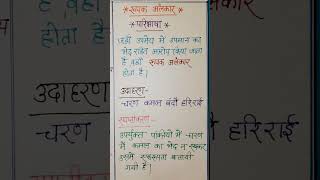 * रूपक अलंकार *
* परिभाषा *
जहाँ उपमेय में उपमान का
भेद रहित आरोप किया जाता
है वहाँ रूपक अलंकार
होता है।
उदाहरण-
चरण कमल बंदौ हरिराई
स्पष्टीकरण-
उपर्युक्त पंक्तियों में चरण
में कमल का भेद न रखकर
उसमें एकरूपता बतायी
गयी है।